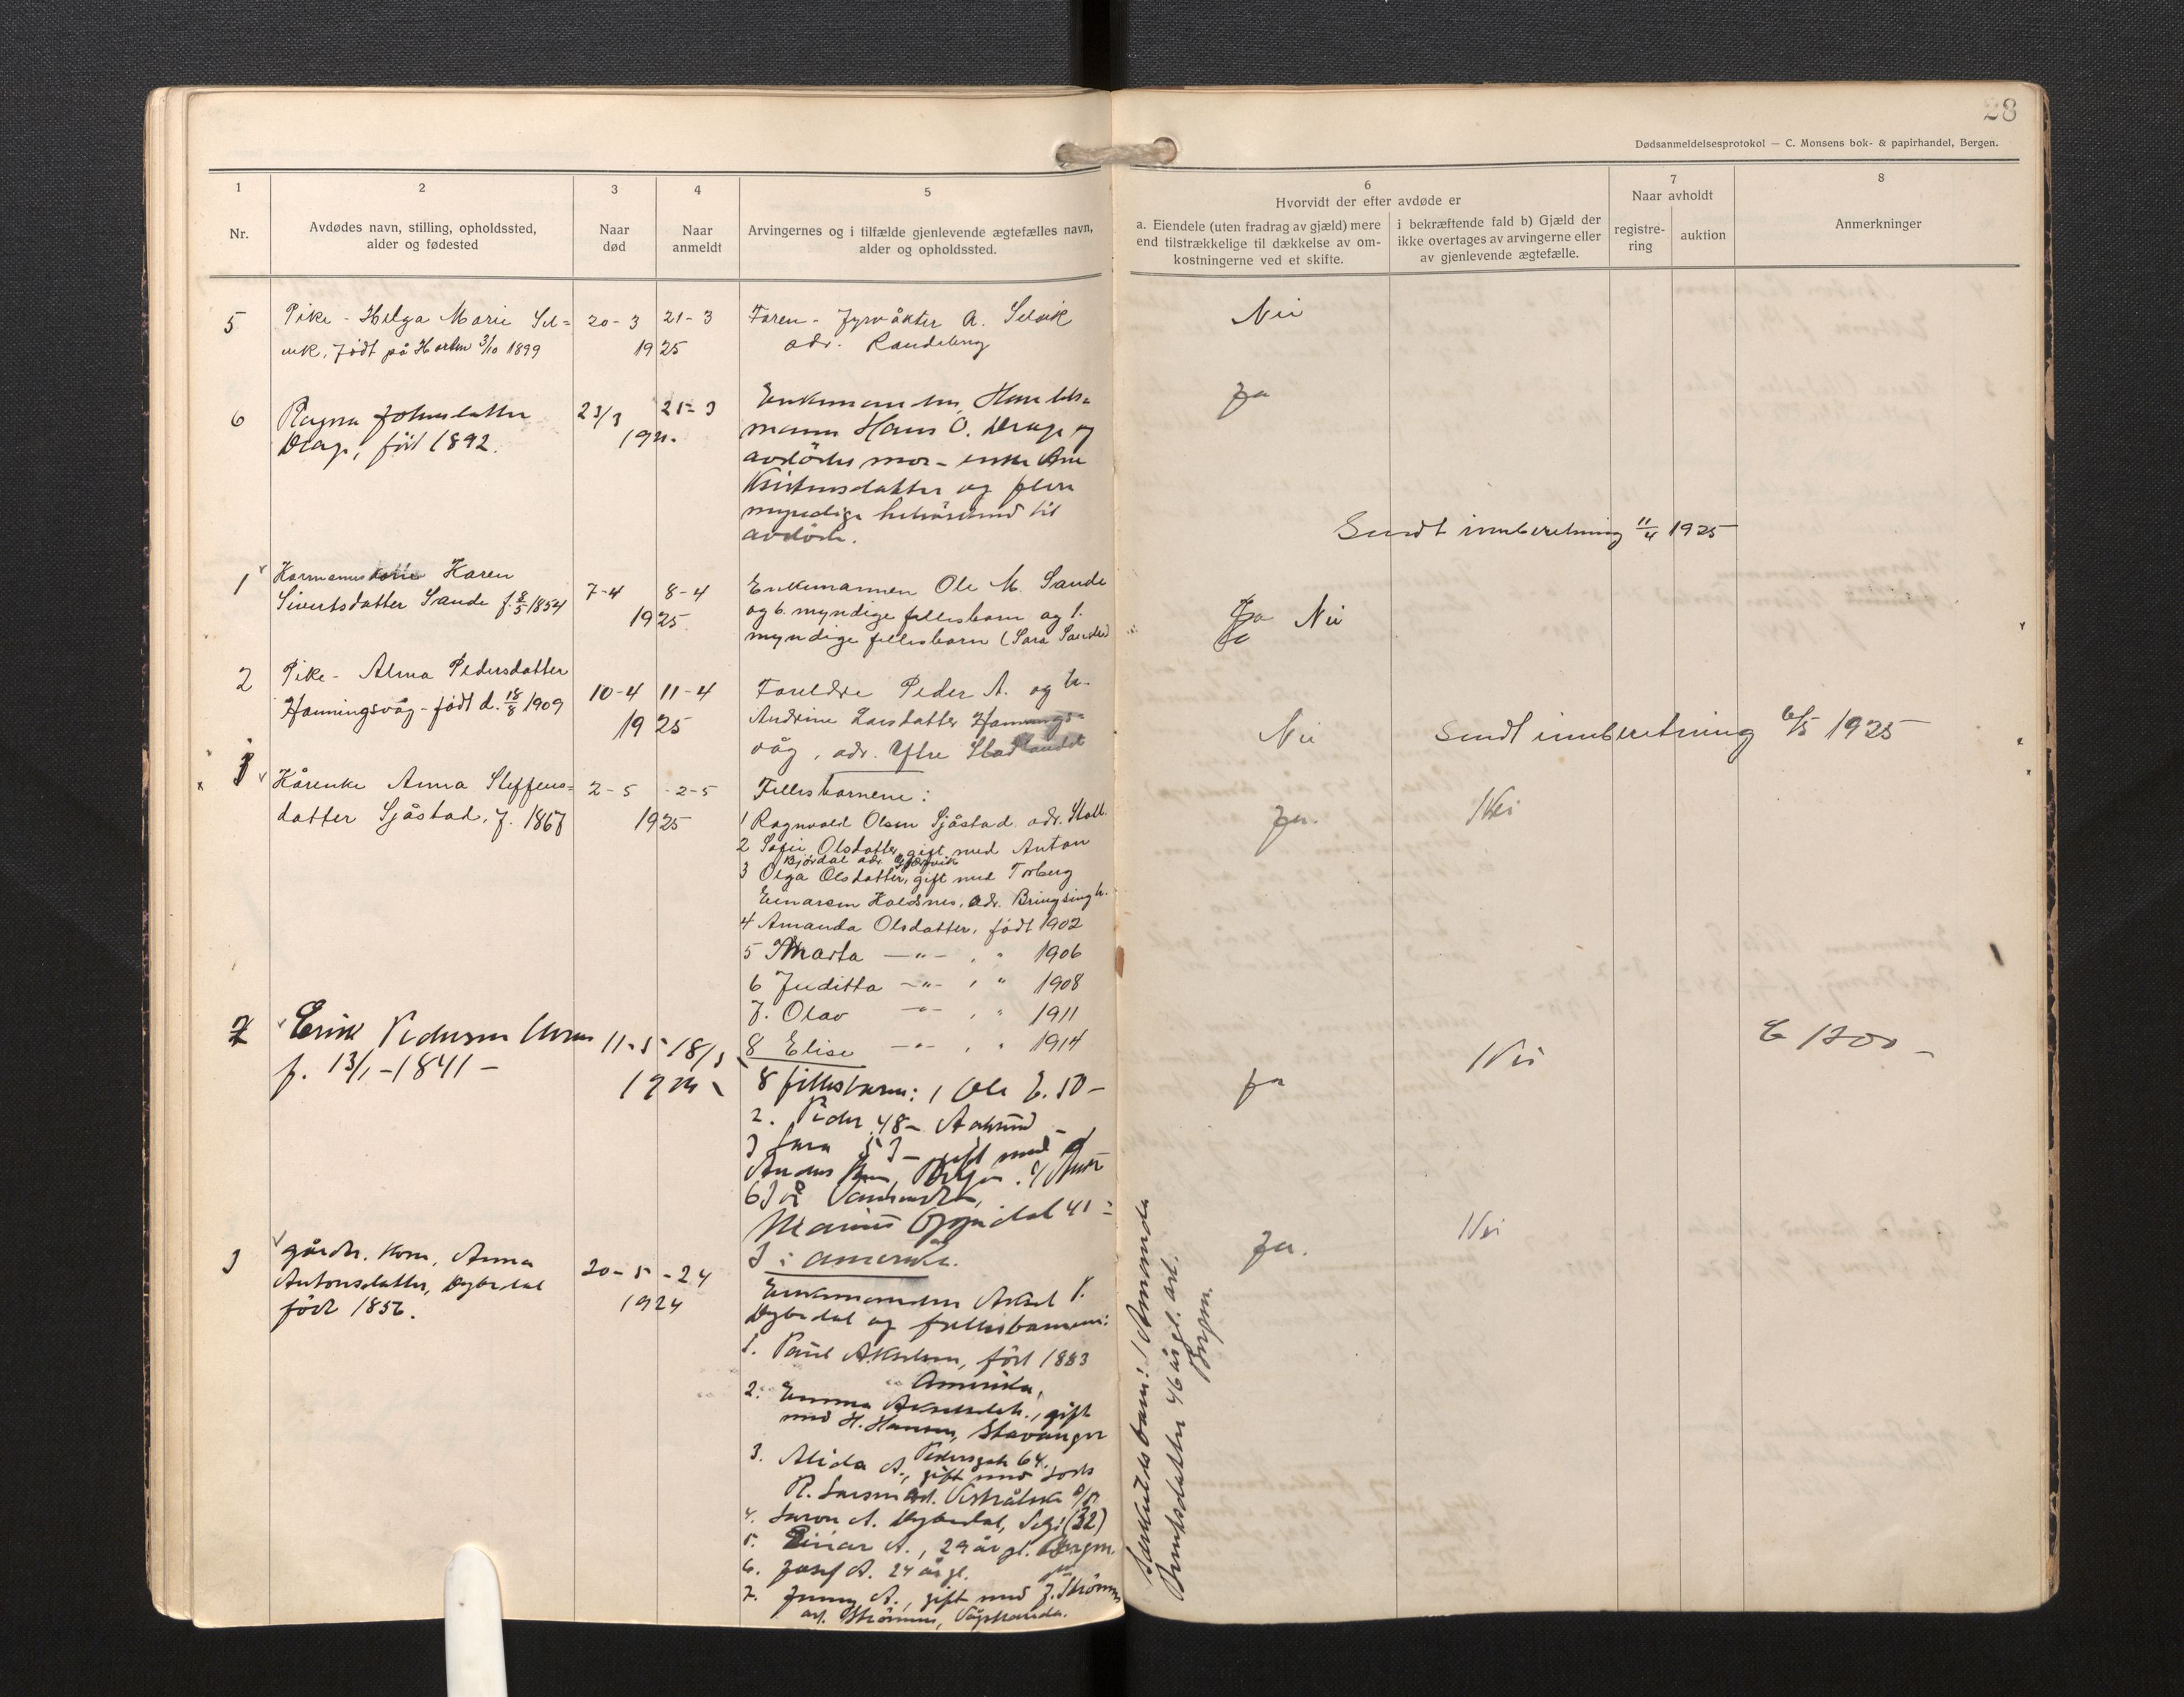 28
Dødsanmeldelsesprotokol — C. Monsens bok- & papirhandel, Bergen.
1
2
3
4
5
Nr.
Avdødes navn, stilling, opholdssted,
alder og fødested
Naar
død
Naar
anmeldt
Arvingernes og i tilfælde gjenlevende ægtefælles navn,
alder og opholdssted.
6
Hvorvidt der efter avdøde er
a. Eiendele (uten fradrag av gjæld) mere
end tilstrækkelige til dækkelse av om-
kostningerne ved et skifte.
i bekræftende fald b) Gjæld der
ikke overtages av arvingerne eller
av gjenlevende ægtefælle.
7
Naar avholdt
registre-
ring
auktion
8
Anmerkninger
5
Pike - Helga Marie Sel=
vik, født på 3/10 1899
20-3
21-3
1925
Faren - fyrvåkter A. Selvik
adr. Raudeberg
Nei
6
Ragna Johnsdatter
Drage, född 1892.
23/3
25-3
Enkemannen, Handels-
mann Hans O. Drage og
avdödes mor - enke Ane
Kristensdatter og flere
myndige helsøskend til
avdöde.
Ja
Sendt innberetning 11/4 1925
1
Kårmannskone Karen
Sivertsdatter Sande f. 8/5 1854
7-4
8-4
1925
Enkemannen Ole M. Sande
og 6 myndige fellesbarn og 1.
myndige fellesbarn (Sara Sande)
Ja Nei
2
Pike - Alma Pedersdatter
Hamningsvåg - født d. 18/8 1909
10-4
11-4
1925
Foreldre Peder A. og h.
Andrine Larsdatter Hamnings-
våg, adr. Ytre Stadlandet
Nei
Sendt innberetning 6/5 1925
1
Kårenke Anna Steffens=
datter Sjåstad, f. 1867
2-5
2-5
1925
Fellesbarnene:
1 Ragnvald Olsen Sjåstad. adr. Stadl.
2 Sofie Olsdatter, gift med Anton
Bjørdal adr.
3 Olga Olsdatter, gift med Torberg
Einarsen Haldsnes, adr. Bringsingh.
4 Amanda Olsdatter, født 1902
5 Marta —"— , " 1906
6 Juditta —"— , " 1908
7. Olav —"— , " 1911
8 Elise —"— , " 1914
Ja.
Nei
2
Erik Pedersen
f. 13/1 - 1841 -
11-5
18/5
8 fellesbarn: 1 Ole E. 50-
2. Peder 48-
3 Sara 53 - gift med
Marius Oppedal 41
3 i Amerika.
Ja
Nei
E 1200 -
3
gårdm. kone, Anna
Antonsdatter, Dybedal
född 1856.
20-5-24
1924
Enkemannen Aksel P.
Dybedal og fellesbarnene:
1. Paul Akselsen, född 1883
Amerika,
2. Emma Akselsdt., gift
med H. Hansen, Stavanger
Pedersgate 64.
3. Alida A., gift med
R. Larsen
4. Dybedal, Selje (32)
5. Einar A., 29 år gl. Bergen.
6. Josef A. 24 år gl.
7. Jenny A., gift med J. Strömmen
adr. Strömmen, Vågstranda.
Ja.
Nei
Særkuldsbarn: 1 Amanda
Berntsdatter 46 år gl. adr.
Bergen.